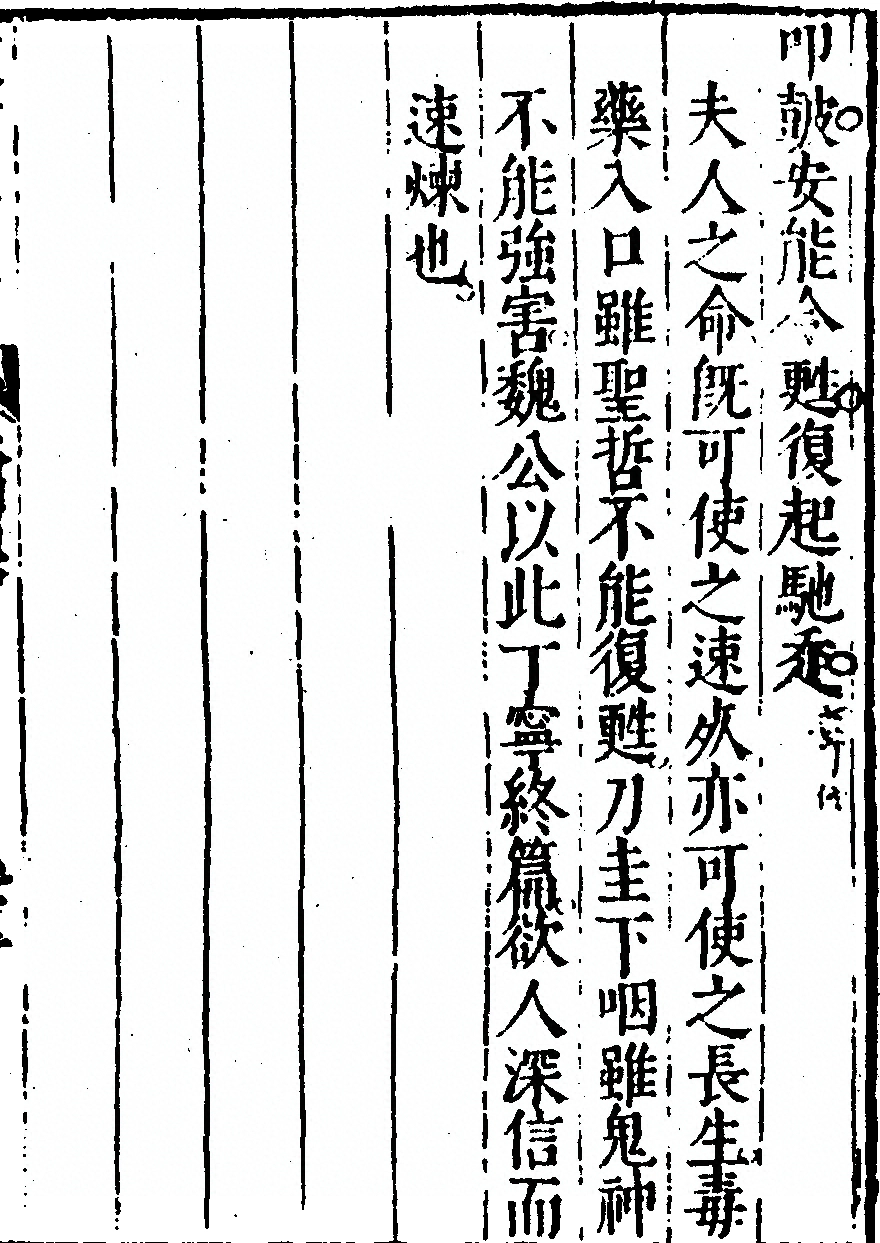 叩皷安能令甦復起馳走
夫人之命旣可使之速死亦可使之長生毒
藥入口雖聖哲不能復甦刀圭下咽雖鬼神
不能強害魏公以此丁寧終篇欲人深信而
速煉也